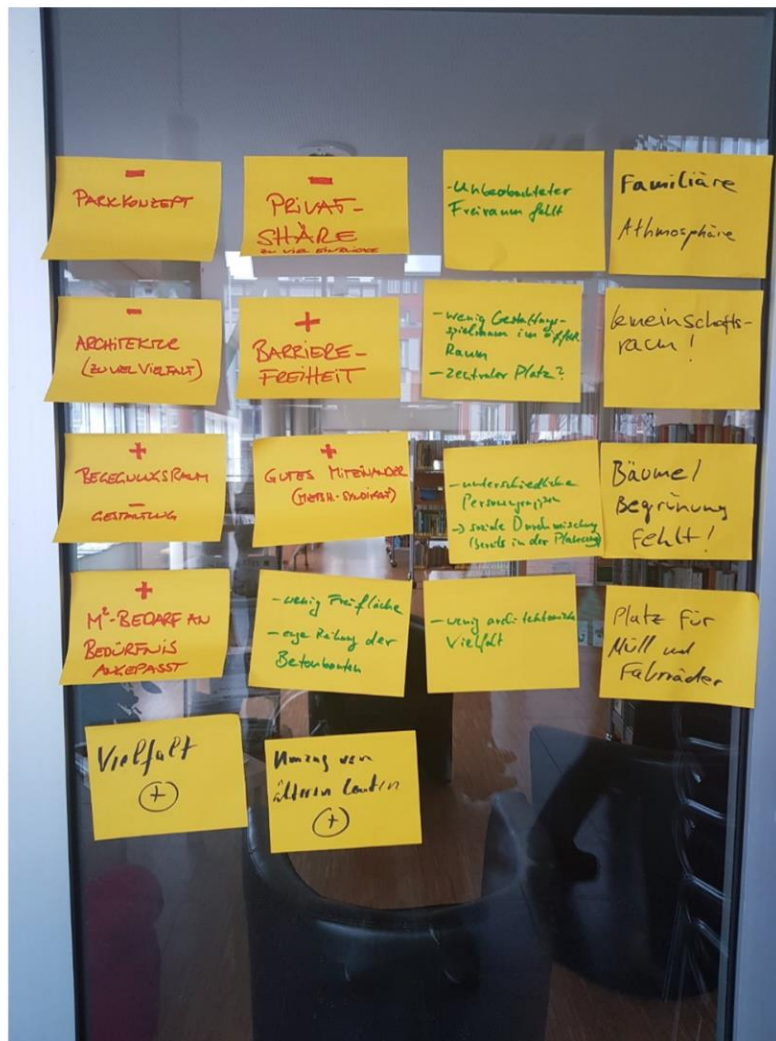 –
PARKKONZEPT
–
PRIVAT-
SHÄRE
ZU VIEL EINBLICKE
- Unbeobachteter
Freiraum fehlt
Familiäre
Athmosphäre
–
ARCHITEKTUR
(ZU VIEL VIELFALT)
+
BARRIERE-
FREIHEIT
- wenig Gestaltungs-
spielraum im öfftl.
Raum
- zentraler Platz?
Gemeinschafts-
raum!
+
BEGEGNUNGSRAUM
–
GESTALTUNG
+
GUTES MITEINANDER
(MIETSH.-SYNDIKAT)
- unterschiedliche
→ soziale Durchmischung
(bereits in der Planung)
Bäume/
Begrünung
fehlt!
+
M²-BEDARF AN
BEDÜRFNIS
ANGEPASST
- wenig Freifläche
- enge Reihung der
Betonbauten
- wenig architektonische
Vielfalt
Platz für
Müll und
Fahrräder
Vielfalt
+
Umzug von
älteren Leuten
+